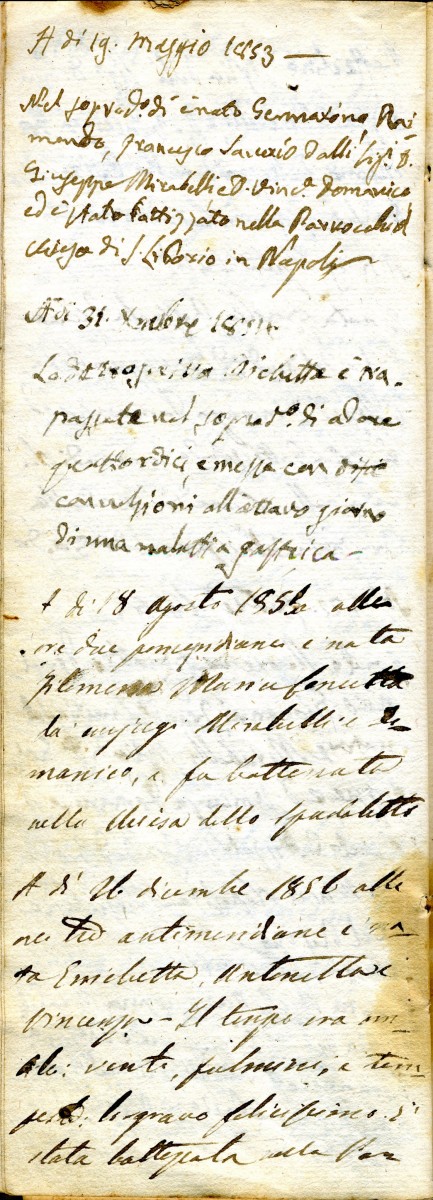 A di 19. maggio 1853 —
Nel soprado. di è nato Gennarino, Rai
mondo, Francesco Saverio dalli Sigi. D.
Giuseppe Mirabelli e D. Vinca. Domanico
ed è stato battizzato nella Parrocchial
chiesa di S. Liborio in Napoli
A di 31. Xmbre 1854.
La Enrichetta è tra-
passata nel soprado. di ad ore
quattordici, e messa con
convulsioni all'ottavo giorno
di una malattia gastrica —
A di 18 agosto 1854 alle
ore due pomeridiane è nata
Filomena Maria
da coniugi Mirabelli e Do-
manico, e fu battezzata
nella chiesa dello Spedaletto
A di 26 dicembre 1856 alle
ore tre antimeridiane è na-
ta Enrichetta, Antonetta e
Vincenza — Il tempo era
vento, fulmini, e tem-
pesta felicissimo. È
stata battezzata nella Par